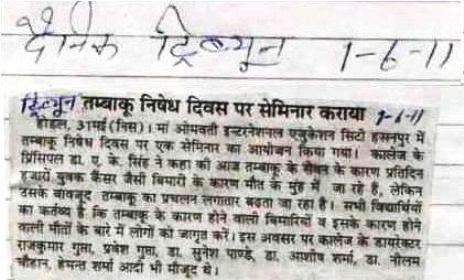 दैनिक ट्रिब्यून 1-6-11
ट्रिब्यून तम्बाकू निषेध दिवस पर सेमिनार कराया 1-6-11
होडल, 31मई (निस)। मां ओमवती इन्टरनेशनल एजुकेशन सिटी हसनपुर में
तम्बाकू निषेध दिवस पर एक सेमिनार का आयोजन किया गया। कालेज के
प्रिंसिपल डा. ए. के. सिंह ने कहा की आज तम्बाकू के सेवन के कारण प्रतिदिन
हजारों युवक कैंसर जैसी बिमारी के कारण मौत के मुंह में जा रहे है, लेकिन
उसके बावजूद तम्बाकू का प्रचलन लगातार बढता जा रहा है। सभी विद्यार्थियों
का कर्तव्य है कि तम्बाकू के कारण होने वाली बिमारियों व इसके कारण होने
वाली मौतों के बारे में लोगों को जागृत करें। इस अवसर पर कालेज के डायरेक्टर
राजकुमार गुप्ता, प्रबेश गुप्ता, डा. सुनेश पाण्डे, डा. आशीष शर्मा, डा. नीलम
चौहान, हेमन्त शर्मा आदी भी मौजूद थे।